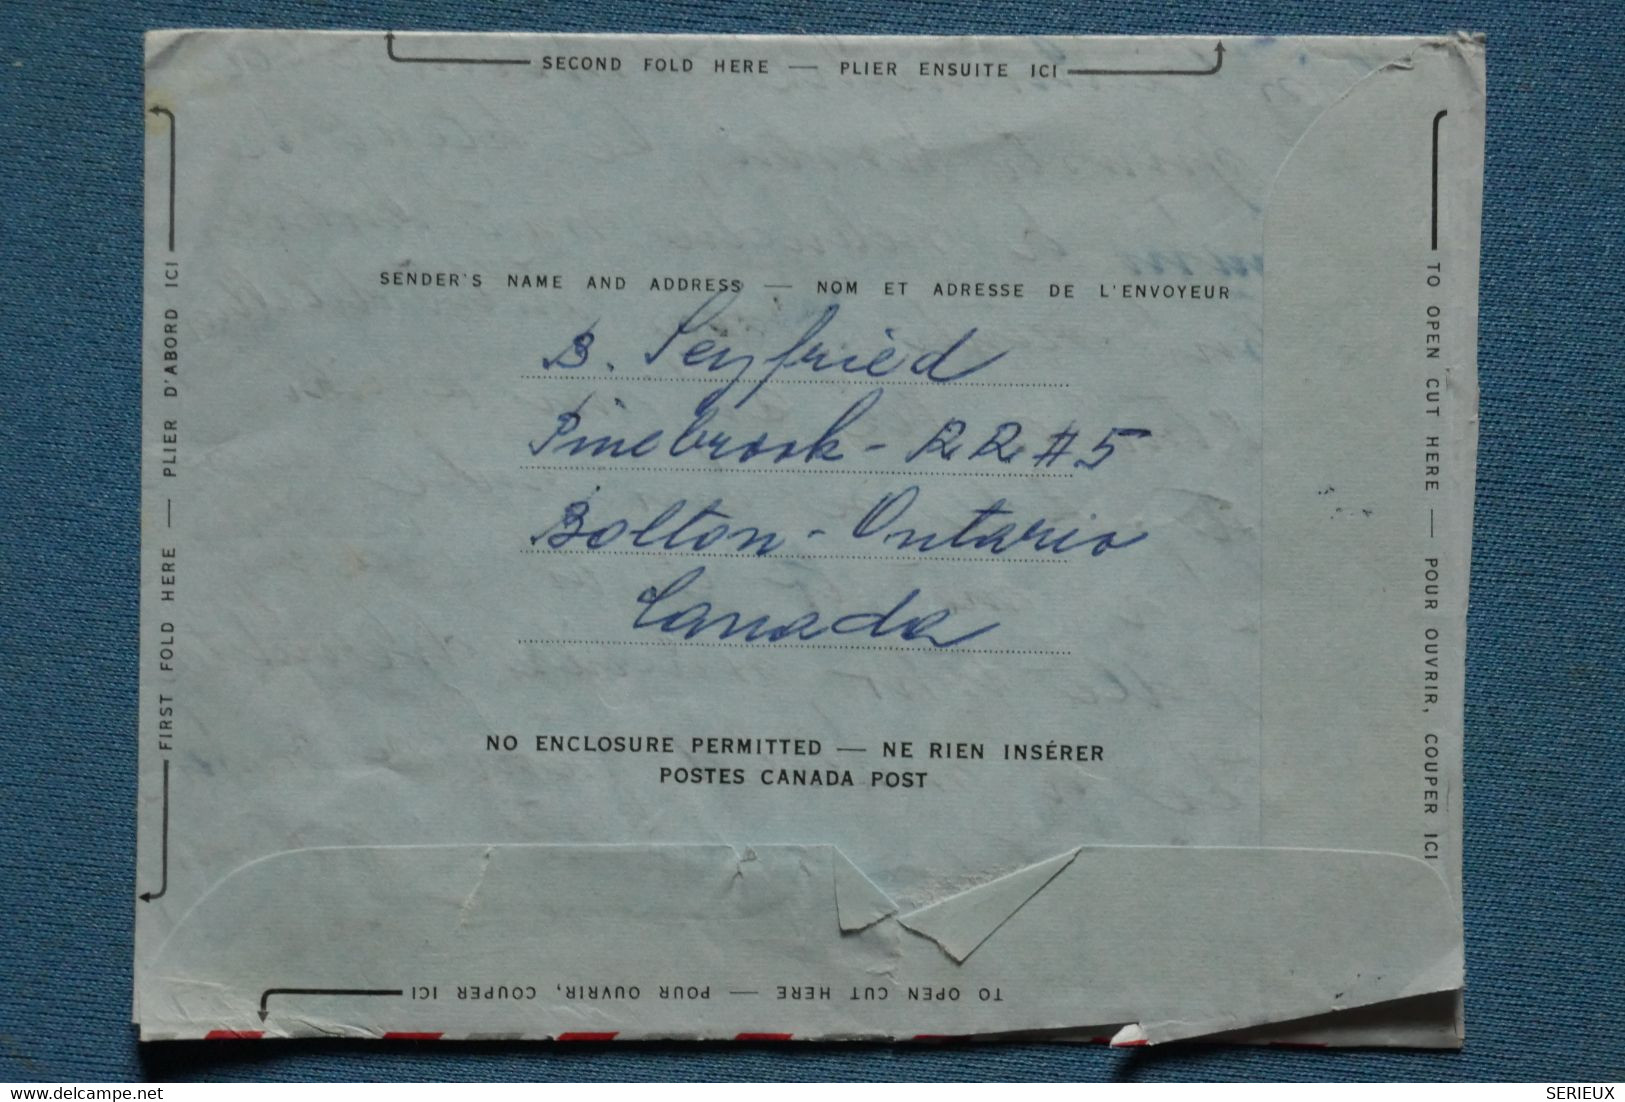 SECOND FOLD HERE — PLIER ENSUITE ICI
FIRST FOLD HERE — PLIER D'ABORD ICI
TO OPEN CUT HERE — POUR OUVRIR, COUPER ICI
SENDER'S NAME AND ADDRESS — NOM ET ADRESSE DE L'ENVOYEUR
B. Seyfried
Pinebrook - RR #5
Bolton - Ontario
Canada
NO ENCLOSURE PERMITTED — NE RIEN INSÉRER
POSTES CANADA POST
TO OPEN CUT HERE — POUR OUVRIR, COUPER ICI
delcampe.net
SERIEUX